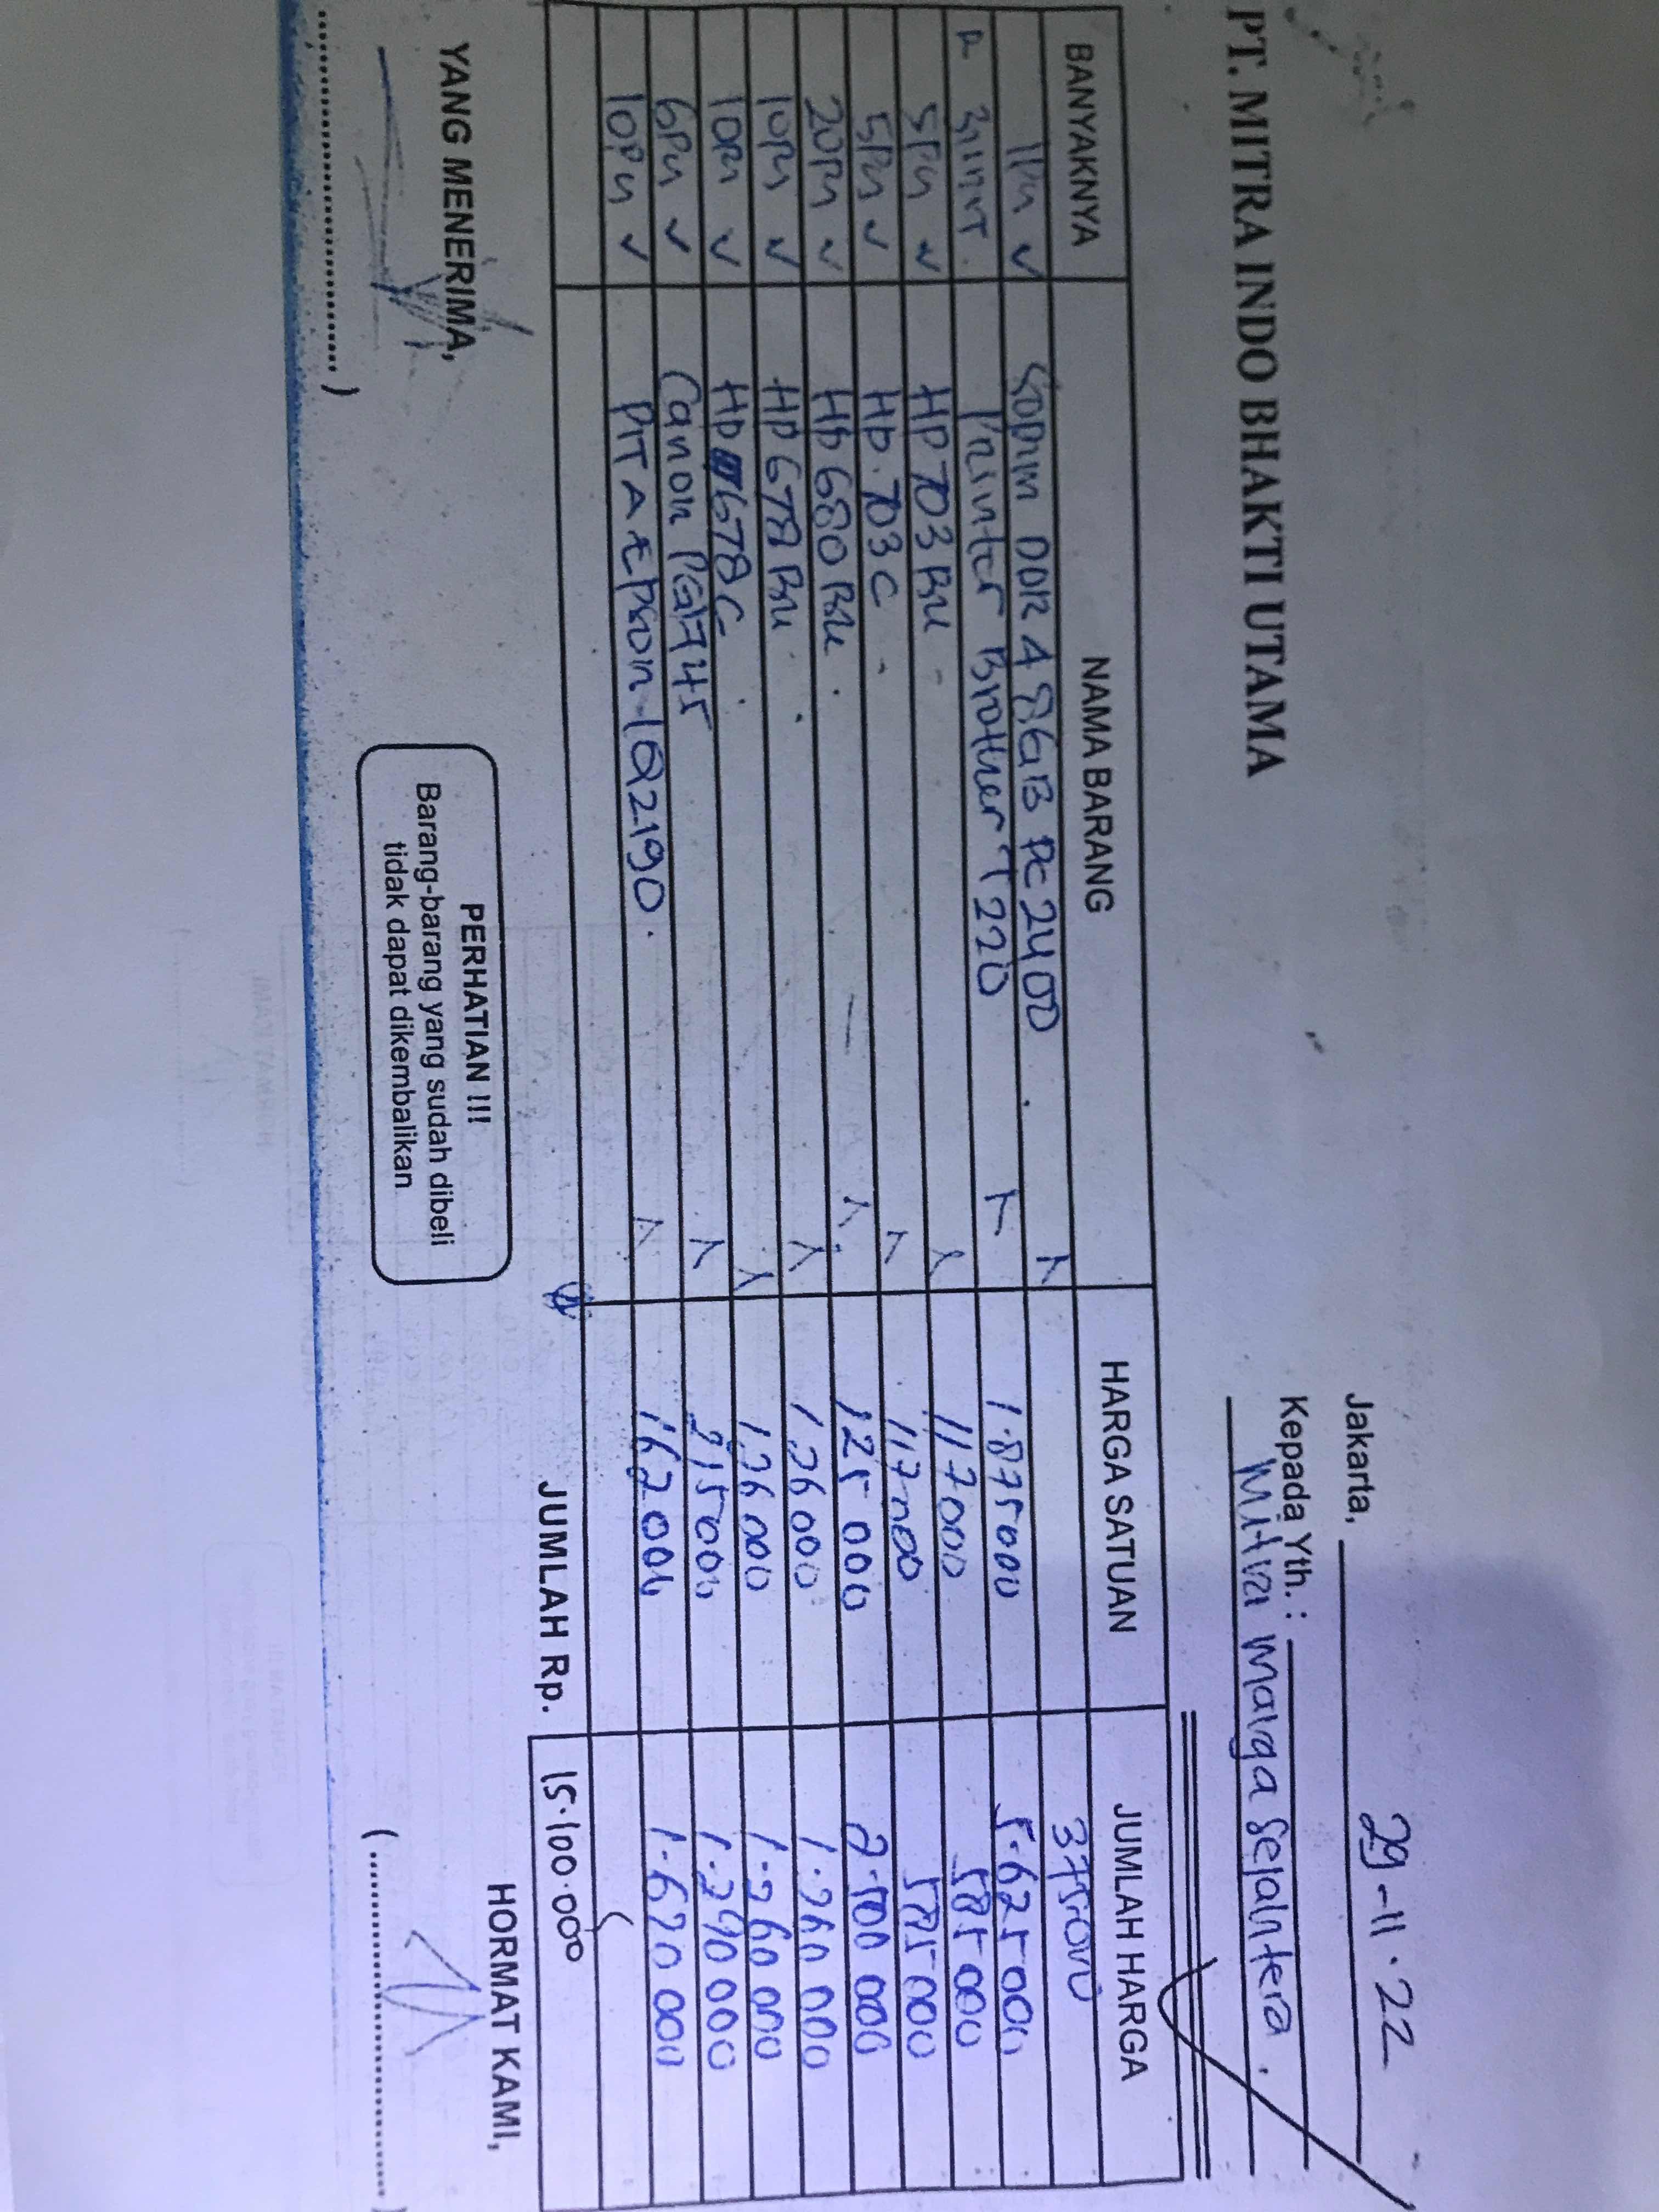 PT. MITRA INDO BHAKTI UTAMA
Jakarta, 29-11-22
Kepada Yth. :
Mitra marga sejahtera.
BANYAKNYA NAMA BARANG HARGA SATUAN JUMLAH HARGA
1Pcs ✓ SODIM DDR 4 8GB PC 2400 375.000
3 unit. Printer Brother T220 1.875000 5.625000
5Pcs ✓ HP 703 BLK 117000 585000
5Pcs ✓ HP. 703 C 117000 585000
20Pcs ✓ HP 680 BLK 125 000 2.500 000
10Pcs ✓ HP 678 BLK 126000 1.260 000
10Pcs ✓ HP 678 C 126000 1.260 000
6Pcs ✓ Canon PG 745 215000 1.290 000
10Pcs ✓ PITA EPSON LQ2190. 162000 1.620 000
JUMLAH Rp. 15.100.000
YANG MENERIMA,
HORMAT KAMI,
PERHATIAN !!!
Barang-barang yang sudah dibeli
tidak dapat dikembalikan